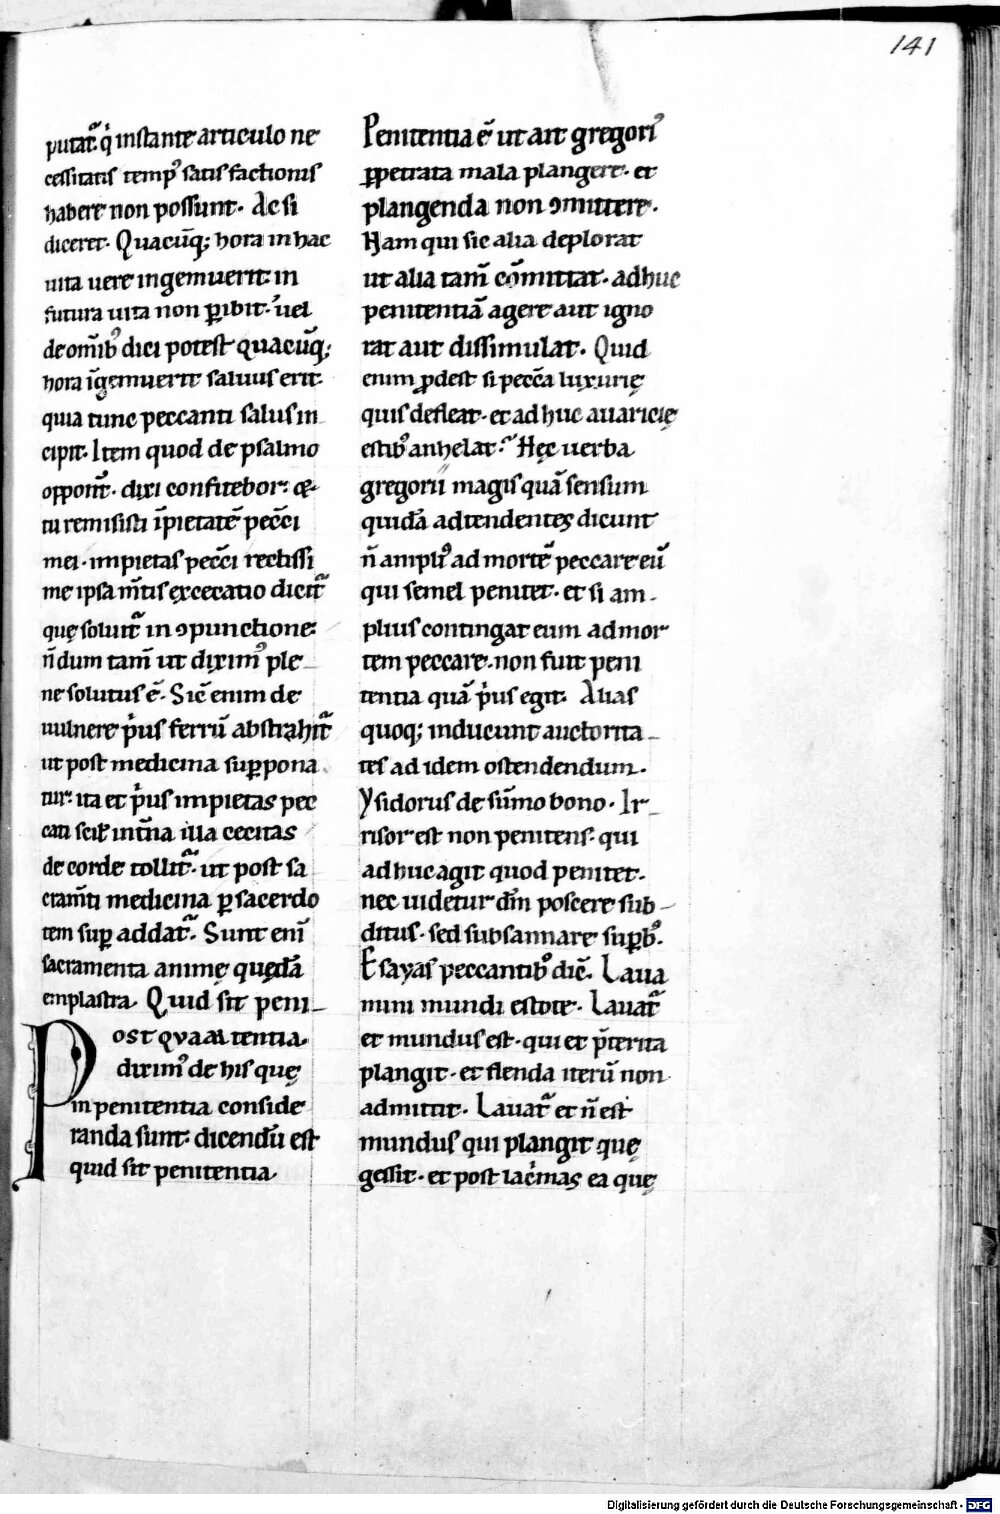 141
putat᷑. q̇ instante articulo ne
cessitatis tempꝰ satisfactionis
habere non possunt. Ac si
diceret. Quacūq; hora in hac
uita uere ingemuerit in
futura uita non ꝑibit. ł uel
de om̄ibꝰ dici potest quacūq;
hora īgemuerit saluus erit.
quia tunc peccanti salus in
cipit. Item quod de psalmo
opponit᷑. dixi confitebor: &
tu remisisti īpietatē pecc̄i
mei. impietas pecc̄i rectissi
me ipsa m̄tis excecatio dicit᷑
quę soluit᷑ in ꝯpunctione:
n̄dum tam̄ ut diximꝰ ple
ne solutus ē. Sic̄ enim de
uulnere pͥus ferrū abstrahit᷑
ut post medicina suꝑpona
tur: ita et pͥus impietas pec
cati scił int̄na illa cecitas
de corde tollit᷑. ut post sa
cram̄ti medicina ꝑ sacerdo
tem suꝑ addat᷑. Sunt enī
sacramenta animę quędā
emplastra. Quid sit peni
POST QVAM tentia.
diximꝰ de his quę
in penitentia conside
randa sunt: dicendū est
quid sit penitentia.
Penitentia ē ut ait gregoriꝰ
ꝑpetrata mala plangere. et
plangenda non ꝯmittere.
Nam qui sic alia deplorat
ut alia tam̄ cōmittat. adhuc
penitentiā agere aut igno
rat aut dissimulat. Quid
enim ꝓdest si pecc̄a luxurię
quis defleat. et adhuc auaricię
estibꝰ anhelat? Hęc uerba
gregorii magis quā sensum
quidā adtendentes dicunt
n̄ ampliꝰ ad mortē peccare eū
qui semel penitet. et si am
plius contingat eum ad mor
tem peccare. non fuit peni
tentia quā pͥus egit. Alias
quoq; inducunt auctorita
tes ad idem ostendendum.
Ysidorus de sūmo bono. Ir
risor est non penitens. qui
adhuc agit quod penitet.
nec uidetur dm̄ poscere sub
ditus. sed subsannare suꝑbꝰ.
Esayas peccantibꝰ dic̄. Laua
mini mundi estote. Lauat᷑
et mundus est. qui et p̄terita
plangit. et flenda iterū non
admittit. Lauat᷑ et n̄ est
mundus qui plangit quę
gessit. et post lacͥmas ea quę
Digitalisierung gefördert durch die Deutsche Forschungsgemeinschaft - DFG